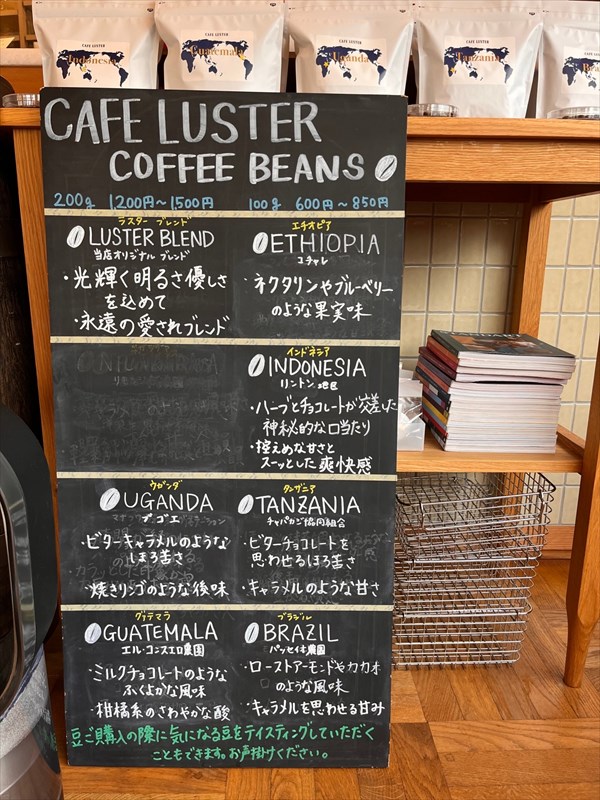 CAFE LUSTER
Indonesia
CAFE LUSTER
Guatemala
CAFE LUSTER
Uganda
CAFE LUSTER
Tanzania
CAFE LUSTER
CAFE LUSTER
COFFEE BEANS
200g 1,200円〜1,500円 100g 600円〜850円
ラスター ブレンド
LUSTER BLEND
当店オリジナル ブレンド
・光輝く明るさ優しさ
を込めて
・永遠の愛されブレンド
エチオピア
ETHIOPIA
コチャレ
ネクタリンやブルーベリー
のような果実味
インドネシア
INDONESIA
リントン 地区
・ハーブとチョコレートが交差した
神秘的な口当たり
・控えめな甘さと
スーッとした爽快感
ウガンダ
UGANDA
ブゴエ
・ビターキャラメルのような
ほろ苦さ
・焼きリンゴのような後味
タンザニア
TANZANIA
チャパカジ協同組合
・ビターチョコレートを
思わせるほろ苦さ
・キャラメルのような甘さ
グァテマラ
GUATEMALA
エル・コンスエロ農園
・ミルクチョコレートのような
ふくよかな風味
・柑橘系のさわやかな酸
ブラジル
BRAZIL
パッセイオ農園
・ローストアーモンドやカカオ
のような風味
・キャラメルを思わせる甘み
豆ご購入の際に気になる豆をテイスティングしていただく
こともできます。お声掛けください。